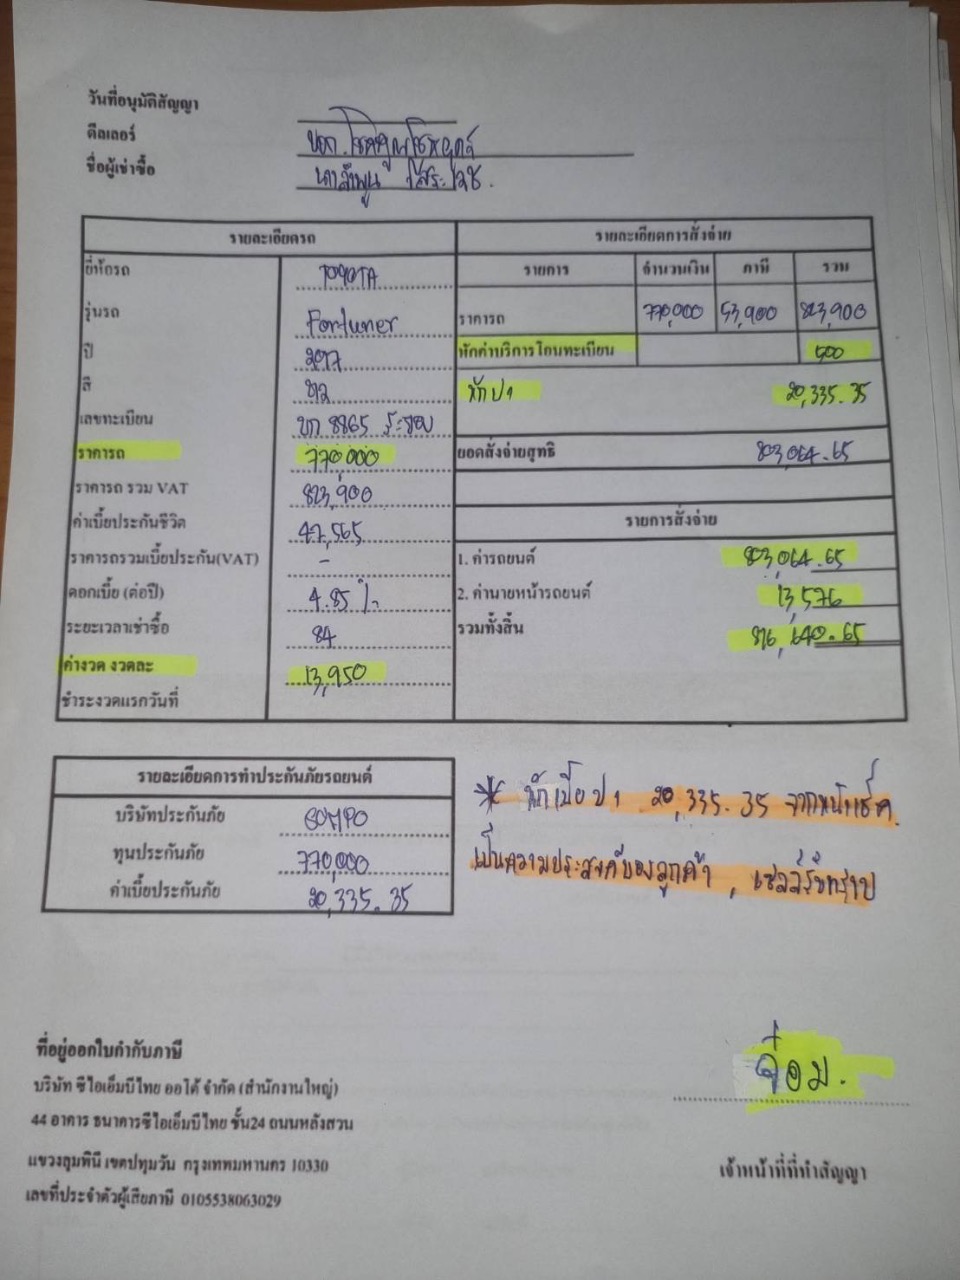 วันที่อนุมัติสัญญา
ดีลเลอร์ บจก.
ชื่อผู้เช่าซื้อ
รายละเอียดรถ
ยี่ห้อรถ TOYOTA
รุ่นรถ Fortuner
ปี 2017
สี
เลขทะเบียน 8865 ระยอง
ราคารถ 770,000
ราคารถ รวม VAT 823,900
ค่าเบี้ยประกันชีวิต 47,565
ราคารถรวมเบี้ยประกัน(VAT) -
ดอกเบี้ย (ต่อปี) 4.85 %
ระยะเวลาเช่าซื้อ 84
ค่างวด งวดละ 13,950
ชำระงวดแรกวันที่
รายละเอียดการสั่งจ่าย
รายการ จำนวนเงิน ภาษี รวม
ราคารถ 770,000 53,900 823,900
หักค่าบริการโอนทะเบียน 500
หัก ป1 20,335.35
ยอดสั่งจ่ายสุทธิ 803,064.65
รายการสั่งจ่าย
1. ค่ารถยนต์ 803,064.65
2. ค่านายหน้ารถยนต์ 13,576
รวมทั้งสิ้น 816,640.65
รายละเอียดการทำประกันภัยรถยนต์
บริษัทประกันภัย SOMPO
ทุนประกันภัย 770,000
ค่าเบี้ยประกันภัย 20,335.35
* หักเบี้ย ป1 20,335.35 จากหน้าเช็ค
เป็นความประสงค์ของลูกค้า, เซลล์รับทราบ
ที่อยู่ออกใบกำกับภาษี
บริษัท ซีไอเอ็มบีไทย ออโต้ จำกัด (สำนักงานใหญ่)
44 อาคาร ธนาคารซีไอเอ็มบีไทย ชั้น24 ถนนหลังสวน
แขวงลุมพินี เขตปทุมวัน กรุงเทพมหานคร 10330
เลขที่ประจำตัวผู้เสียภาษี 0105538063029
เจ้าหน้าที่ที่ทำสัญญา